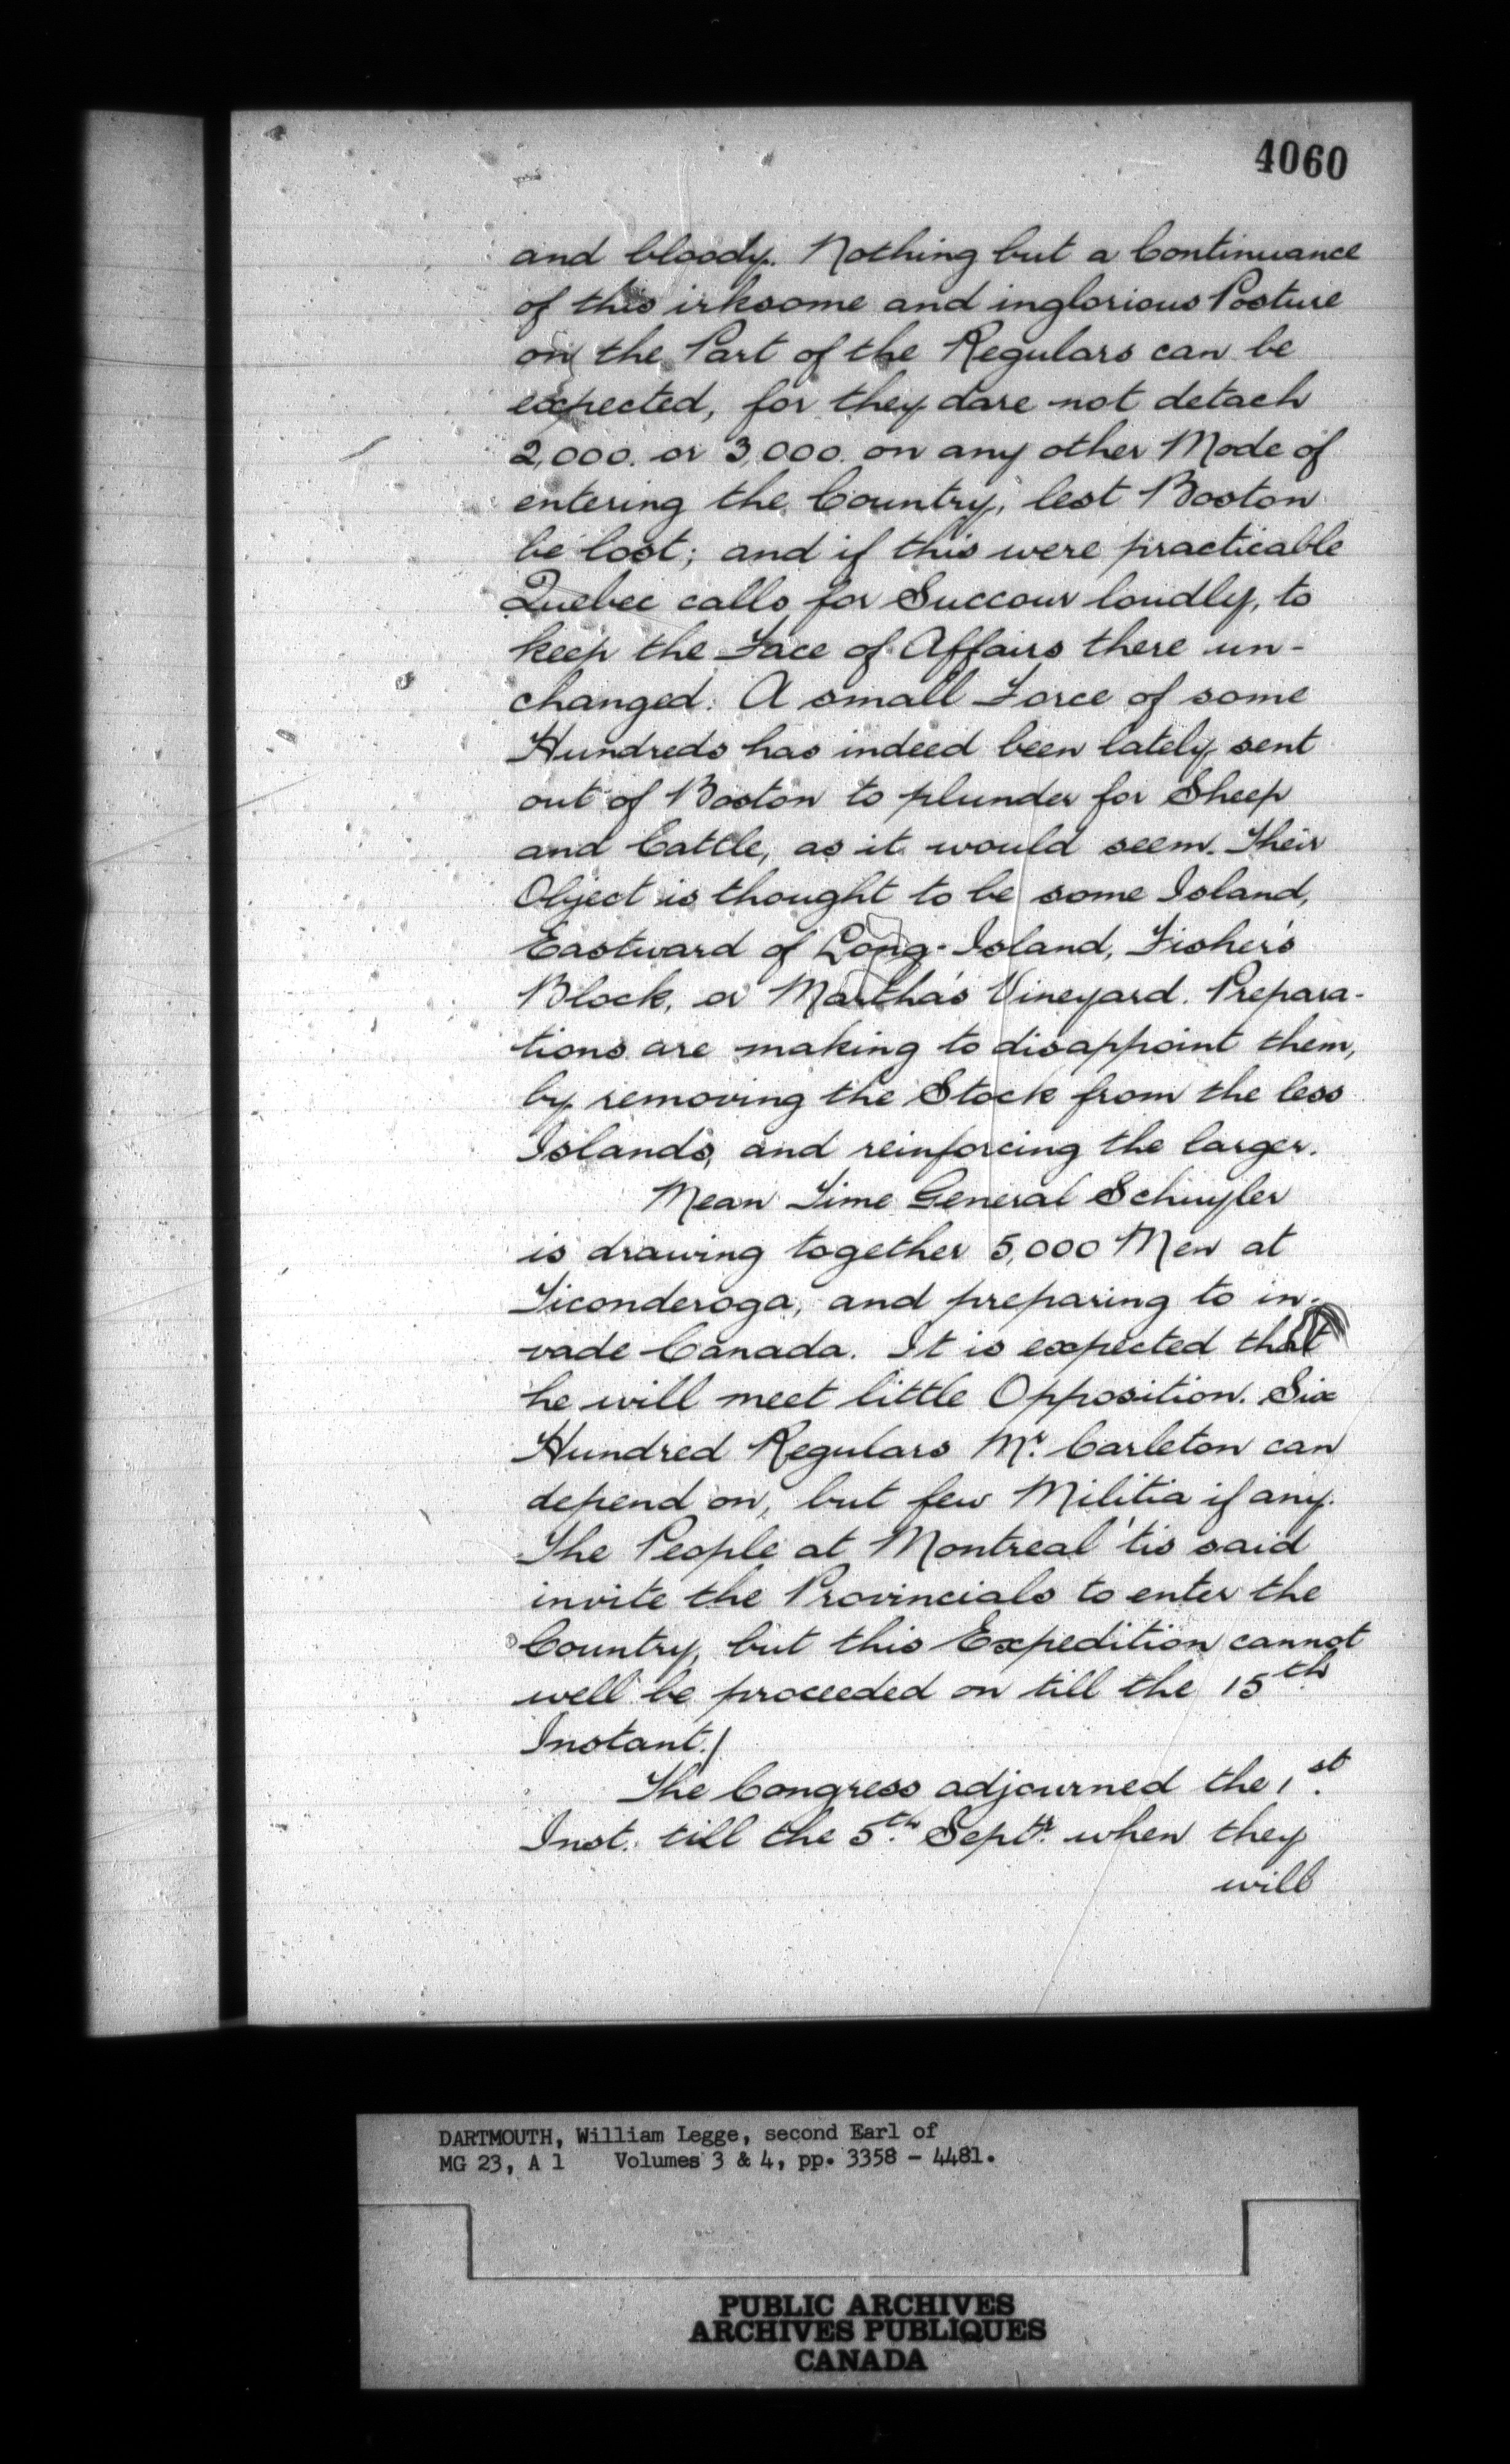 4060
and bloody. Nothing but a Continuance
of this irksome and inglorious Posture
on the Part of the Regulars can be
expected, for they dare not detach
2,000. or 3,000. on any other Mode of
entering the Country, lest Boston
be lost; and if this were practicable
Quebec calls for Succour loudly, to
keep the Face of Affairs there un-
changed. A small Force of some
Hundreds has indeed been lately sent
out of Boston to plunder for Sheep
and Cattle, as it would seem. Their
Object is thought to be some Island,
Eastward of Long-Island, Fisher's
Block, or Martha's Vineyard. Prepara-
tions are making to disappoint them,
by removing the Stock from the less
Islands, and reinforcing the larger.
Mean Time General Schuyler
is drawing together 5,000 Men at
Ticonderoga, and preparing to in-
vade Canada. It is expected that
he will meet little Opposition. Six
Hundred Regulars Mr. Carleton can
depend on, but few Militia if any.
The People at Montreal 'tis said
invite the Provincials to enter the
Country, but this Expedition cannot
well be proceeded on till the 15th
Instant./
The Congress adjourned the 1st.
Inst. till the 5th. Septr. when they
will
DARTMOUTH, William Legge, second Earl of
MG 23, A 1 Volumes 3 & 4, pp. 3358 - 4481.
PUBLIC ARCHIVES
ARCHIVES PUBLIQUES
CANADA